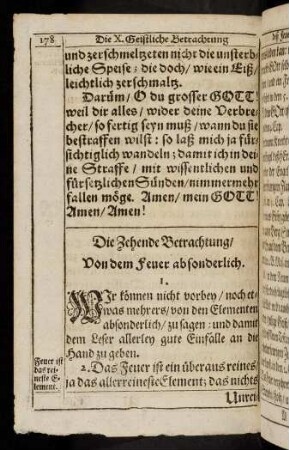 178 Die X. Geistliche Betrachtung
und zerschmeltzeten nicht die unsterb-
liche Speise; die doch/ wie ein Eiß/
leichtlich zerschmaltz.
Darüm/ O du grosser GOTT!
weil dir alles/ wider deine Verbre-
cher/ so fertig seyn muß/ wann du sie
bestraffen wilst: so laß mich ja für-
sichtiglich wandeln; damit ich in dei-
ne Straffe/ mit wissentlichen und
fürsetzlichen Sünden/ nimmermehr
fallen möge. Amen/ mein GOTT!
Amen/ Amen!
Die Zehende Betrachtung/
Von dem Feuer absonderlich.
1.
WIr können nicht vorbey/ noch et-
was mehrers/ von den Elementen
absonderlich/ zu sagen: und damit
dem Leser allerley gute Einfälle an die
Hand zu geben.
Feuer ist
das rei-
neste E-
lement.
2. Das Feuer ist ein überaus reines/
ja das allerreineste Element; das nichts
Unrei-